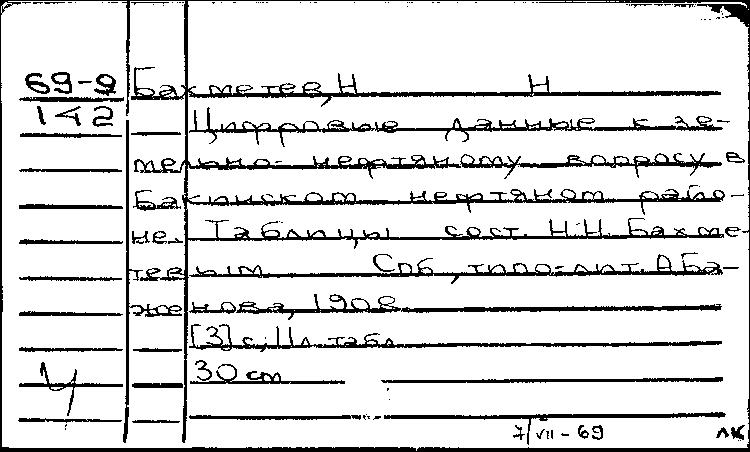 69-9 Бахметев, Н Н
142 Цифровые данные к зе-
мельно-нефтяному вопросу в
Бакинском нефтяном райо-
не. Таблицы сост. Н.Н. Бахме-
тевым Спб, типо-лит. А Ба-
женова, 1908.
[3] с, 11 л. табл
30 cm
У
7/VII-69 ЛК